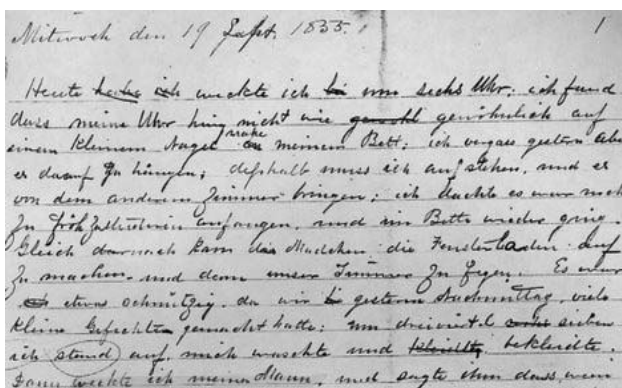 Mitwoch den 19 Sept. 1855. 1
Heute habe ich weckte ich bi um sechs Uhr; ich fand
dass meine Uhr hing nicht wie gewohl gewöhnlich auf
einem kleinem Nagel nahe an meinem Bett; ich vergass gestern Abe
er darauf zu hängen; deshalb muss ich aufstehen, und er
von dem anderen Zimmer bringen; ich dachte es war noch
zu früh anfangen, und im Bette wieder ging.
Gleich darnach kam das Mädchen die Fensterladen auf
zu machen, und dann unser Zimmer zu fegen. Es war
etwas schmützig, da wir gestern Nachmittag, viele
kleine Gefechten gemacht hatte; um dreiviertel sieben
ich stand auf, mich waschte und bekleidte.
Dann weckte ich meinen Mann, und sagte ihm dass wir